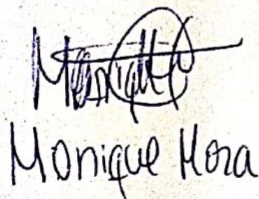 Monique Mora